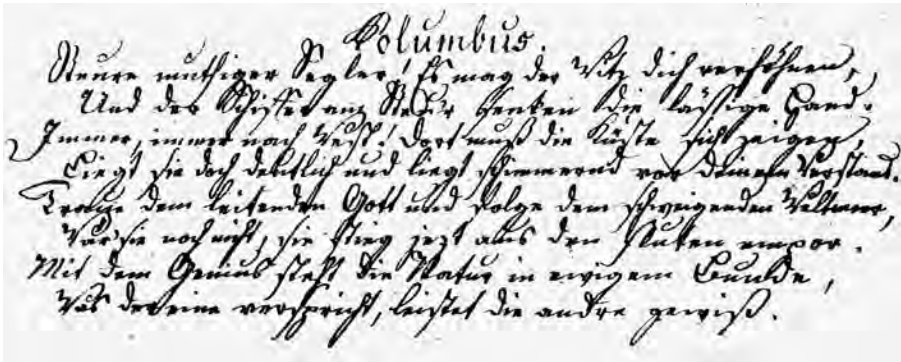 Kolumbus.
Steure muthiger Segler! Es mag der Witz dich verhöhnen,
Und der Schiffer am Steuer senken die lässige Hand.
Immer, immer nach West! Dort muß die Küste sich zeigen,
Liegt sie doch deutlich und liegt schimmernd vor deinem Verstand.
Traue dem leitenden Gott und folge dem schweigenden Weltmeer,
Wär sie noch nicht, sie stieg jezt aus den Fluten empor.
Mit dem Genius steht die Natur in ewigem Bunde,
Was der eine verspricht, leistet die andre gewiß.